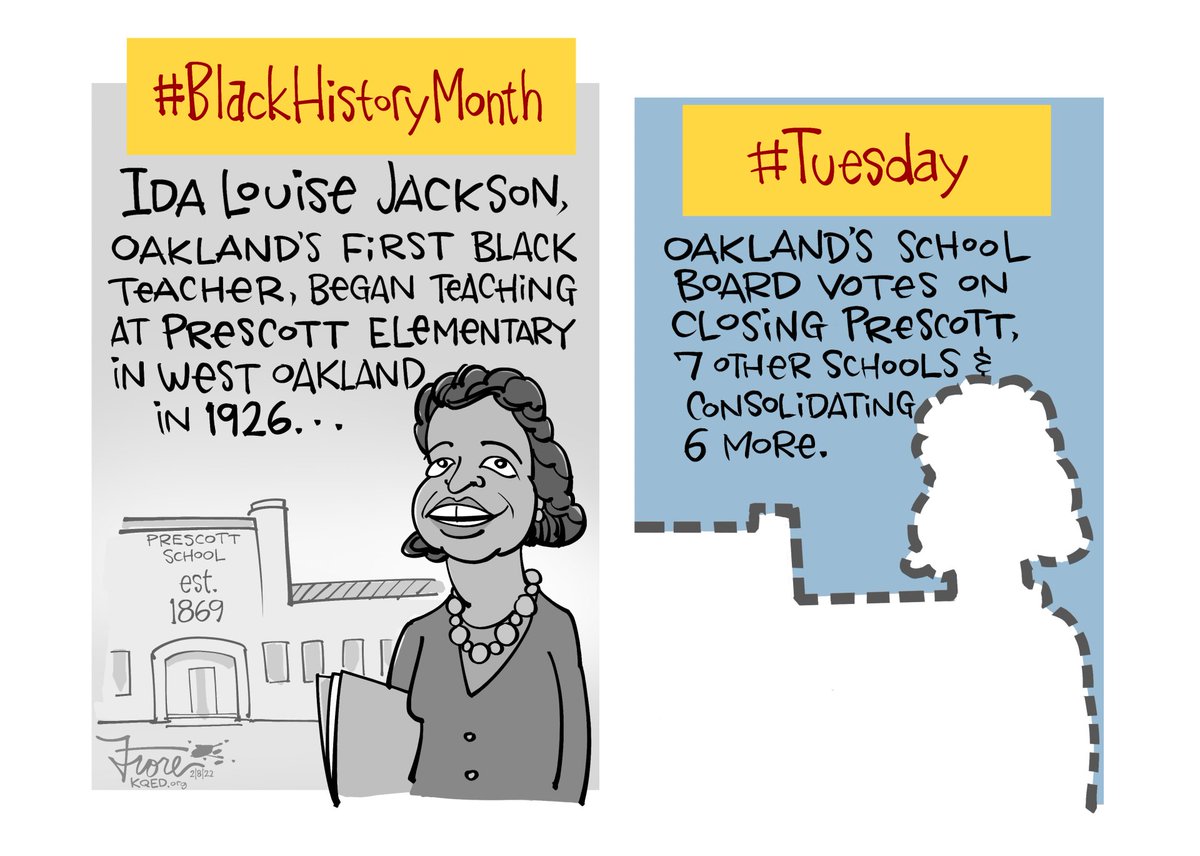 #BlackHistoryMonth
IDA LOUISE JACKSON,
OAKLAND'S FIRST BLACK
TEACHER, BEGAN TEACHING
AT PRESCOTT ELEMENTARY
IN WEST OAKLAND
IN 1926...
PRESCOTT
SCHOOL
est.
1869
Fiore
2/8/22
KQED.org
#Tuesday
OAKLAND'S SCHOOL
BOARD VOTES ON
CLOSING PRESCOTT,
7 OTHER SCHOOLS &
CONSOLIDATING
6 MORE.